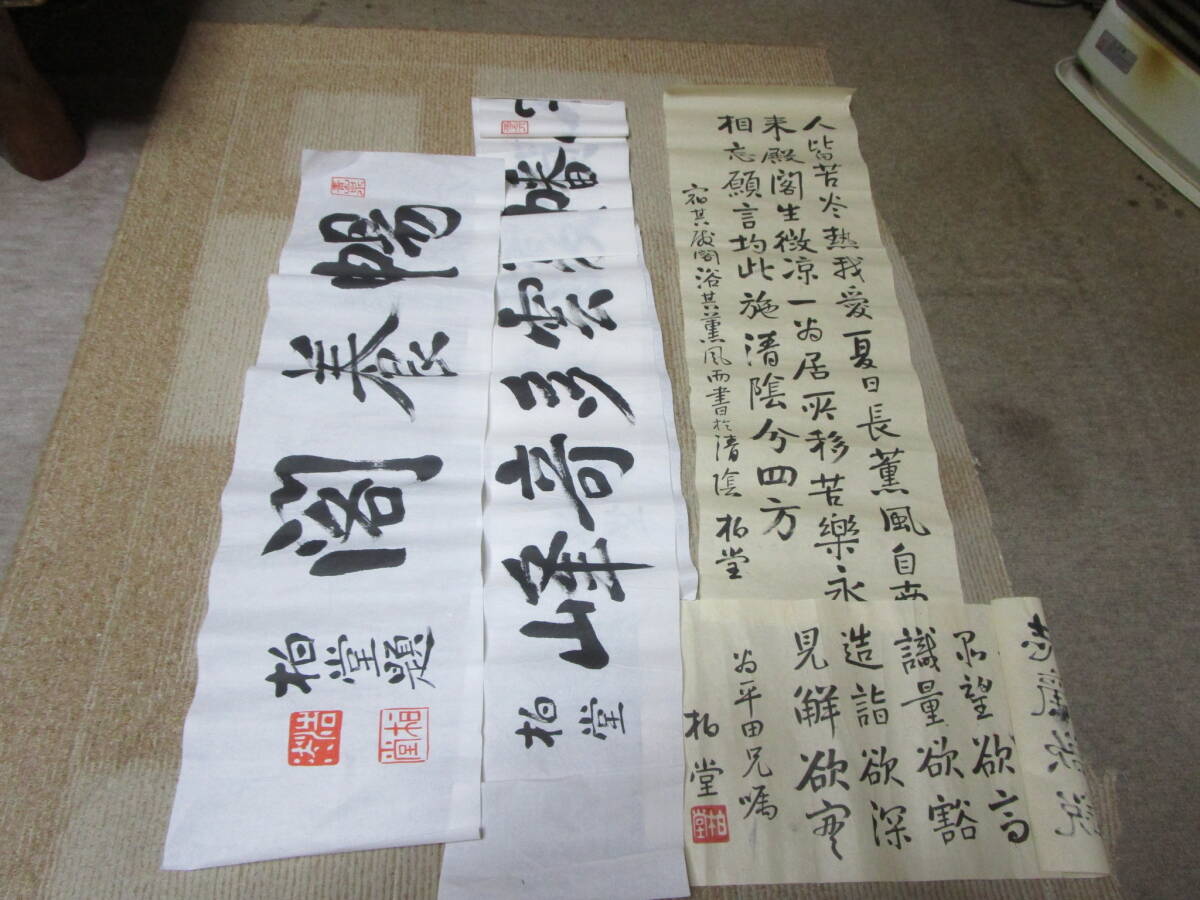 人皆苦炎熱我愛夏日長薰風自南
来殿閣生微涼一為居所移苦樂永
相忘願言均此施清陰分四方
宿其殿閣浴其薰風而書於清陰 柏堂
望欲高
識量欲豁
造詣欲深
見解欲
為平田兄嘱
柏堂
柏堂
雲多奇峰
柏堂
養閣
柏堂題
柏堂